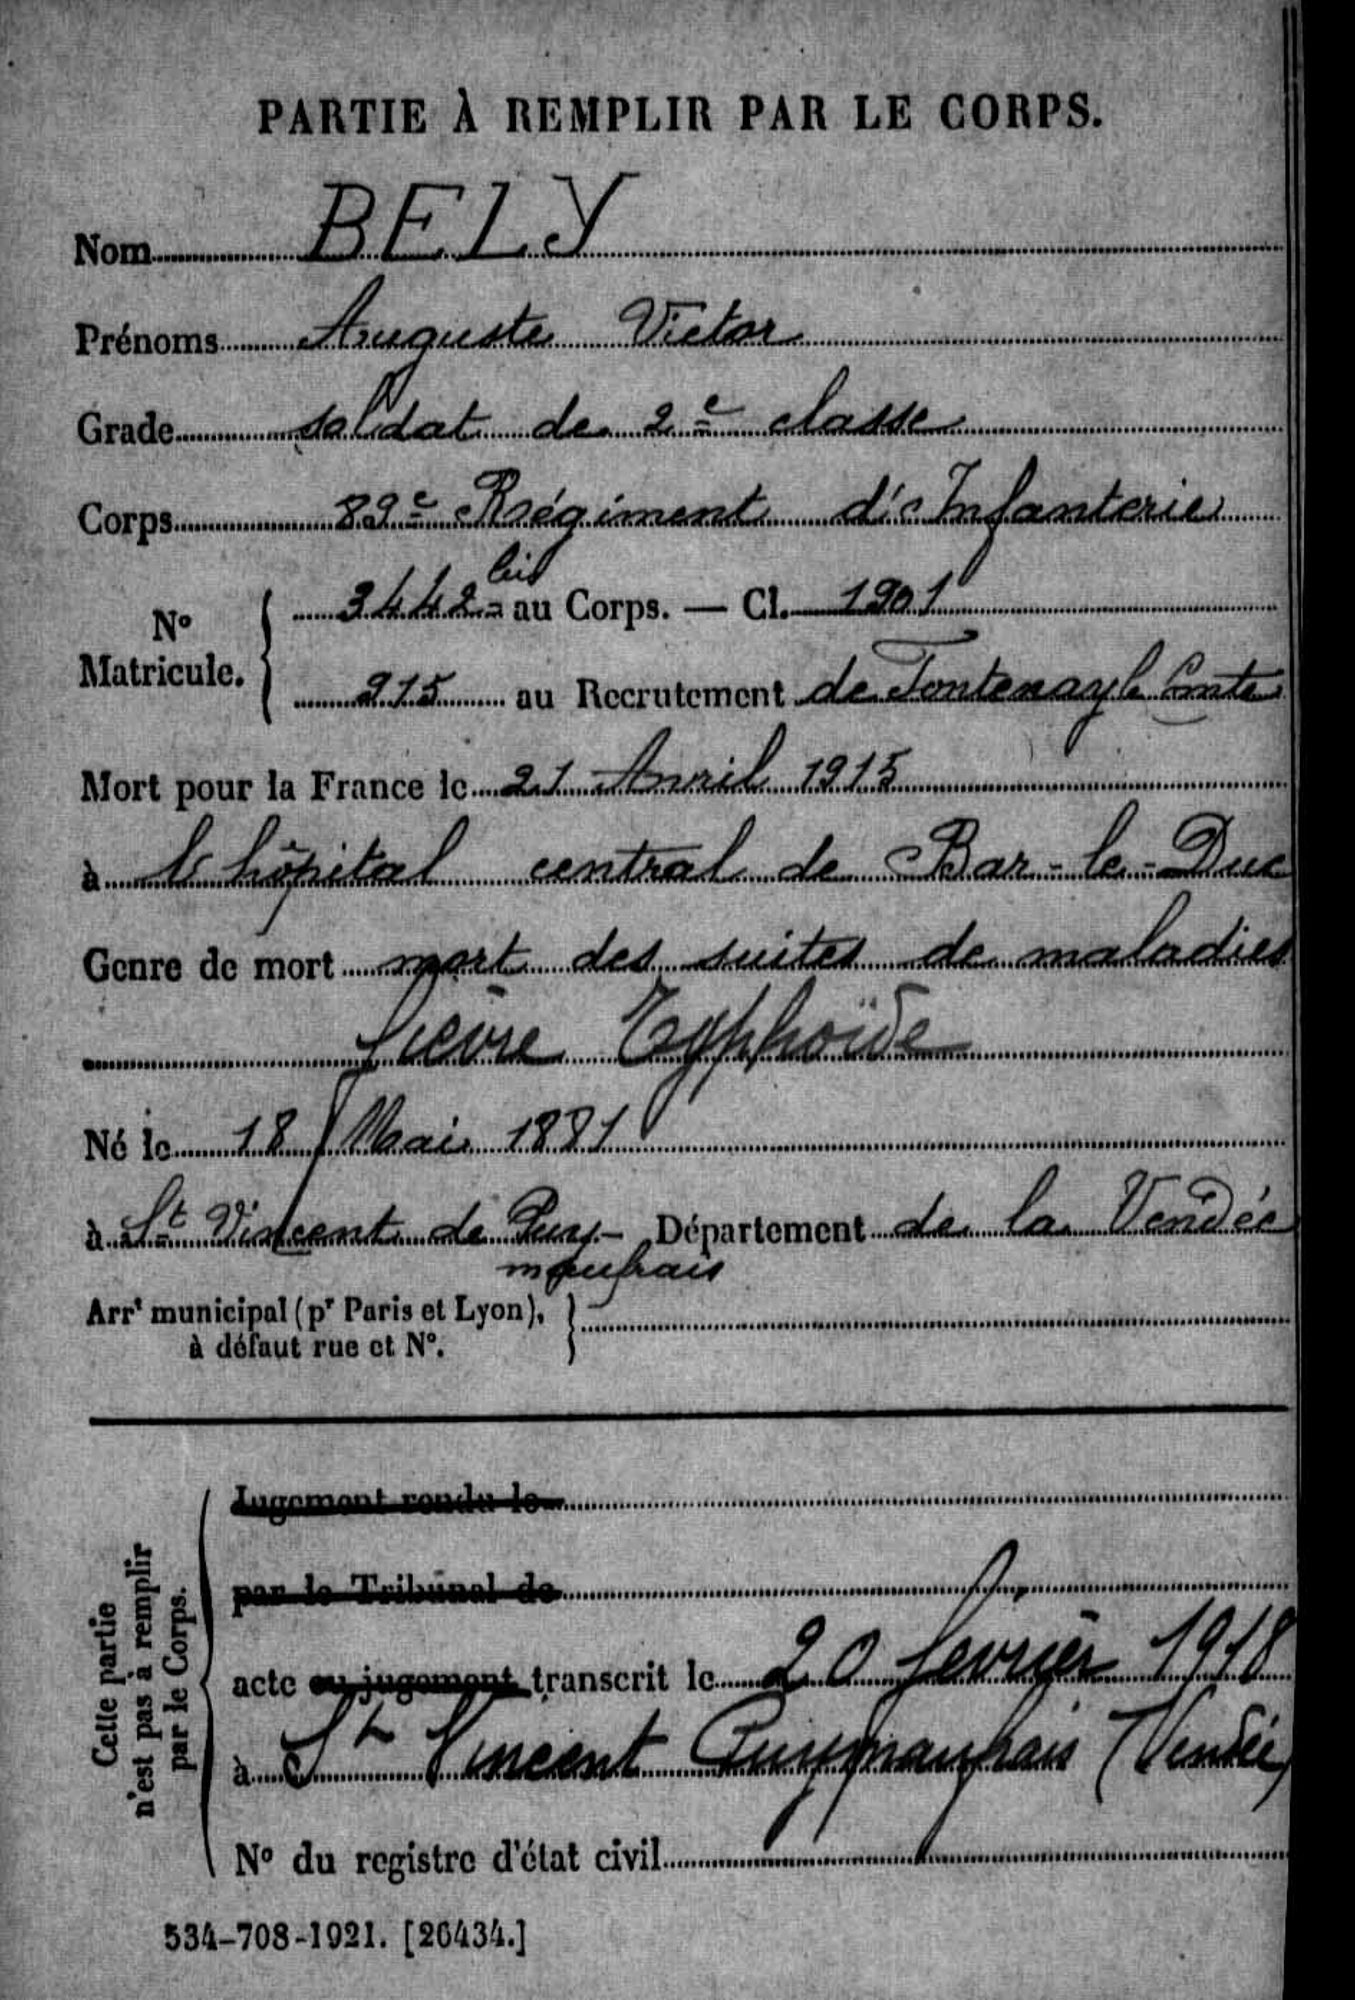 PARTIE À REMPLIR PAR LE CORPS.
Nom BELY
Prénoms Auguste Victor
Grade soldat de 2e classe
Corps 89e Régiment d'Infanterie
No Matricule. { 3442 bis au Corps. — Cl. 1901
915 au Recrutement de Fontenay le Comte
Mort pour la France le 21 Avril 1915
à l'hôpital central de Bar-le-Duc
Genre de mort mort des suites de maladies
fièvre Typhoïde
Né le 18 Mai 1881
à St Vincent de Puy- Département de la Vendée
maufrais
Arrt municipal (pr Paris et Lyon), }
à défaut rue et No.
Cette partie
n'est pas à remplir
par le Corps.
Jugement rendu le
par le Tribunal de
acte ou jugement transcrit le 20 février 1918
à St Vincent Puymaufrais (Vendée)
No du registre d'état civil
534-708-1921. [26434.]